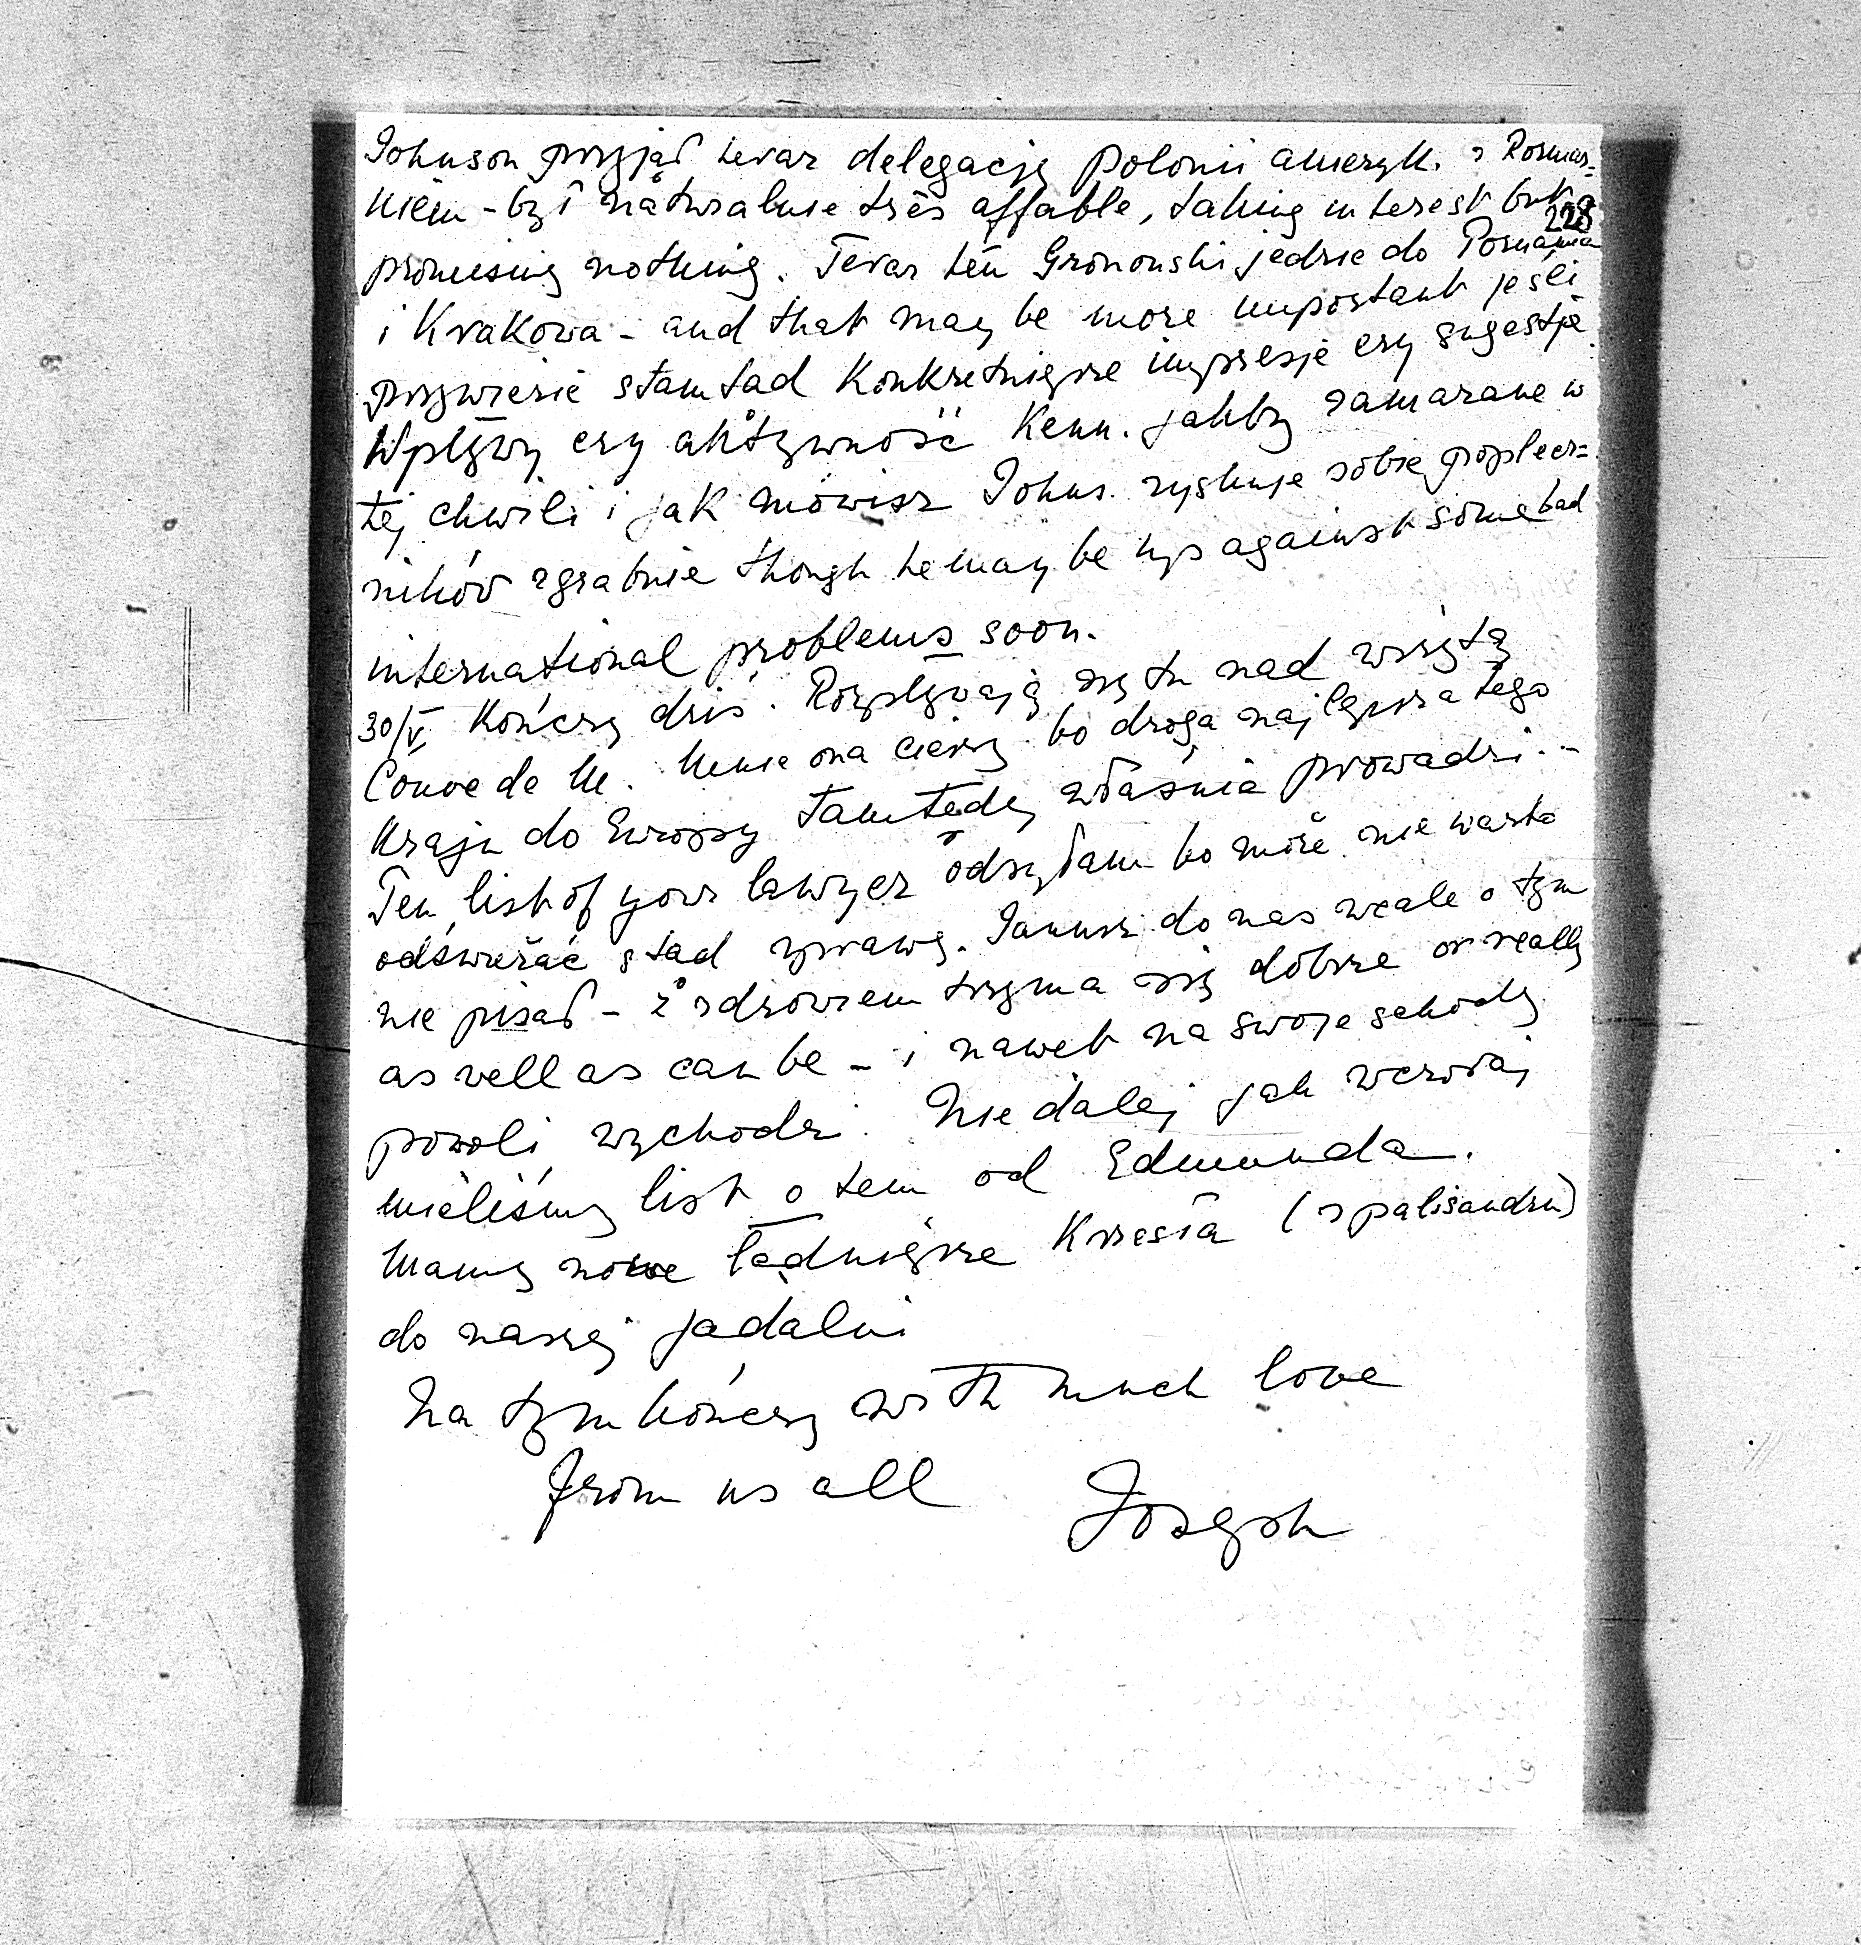 Johnson przyjął teraz delegację Polonii ameryk. z Rozmar=
kiem - był naturalnie très affable, taking interest but
228
promising nothing. Teraz ten Gronouski jedzie do Poznania
i Krakowa - and that may be more important jeśli
przywiezie stamtąd konkretniejsze impresje czy sugestje.
Wpływy czy aktywność Kenn. jakby zamarane w
tej chwili i jak mówisz Johns. zyskuje sobie poplecz=
ników zgrabnie though he may be up against some bad
international problems soon.
30/V. Kończę dziś. Rozpływają się tu nad wizytą
Couve de M. Mnie ona cieszy bo droga najlepsza tego
kraju do Europy tamtędy właśnie prowadzi...
Ten list of your lawyer odsyłam bo może nie warto
odświeżać stąd sprawę. Janusz do nas wcale o tym
nie pisał - z zdrowiem trzyma się dobrze or really
as well as can be - i nawet na swoje schody
powoli wychodzi. Nie dalej jak wczoraj
mieliśmy list o tem od Edmunda.
Mamy nowe ładniejsze krzesła (z palisandru)
do naszej jadalni
Na tym kończę with much love
from us all Joseph